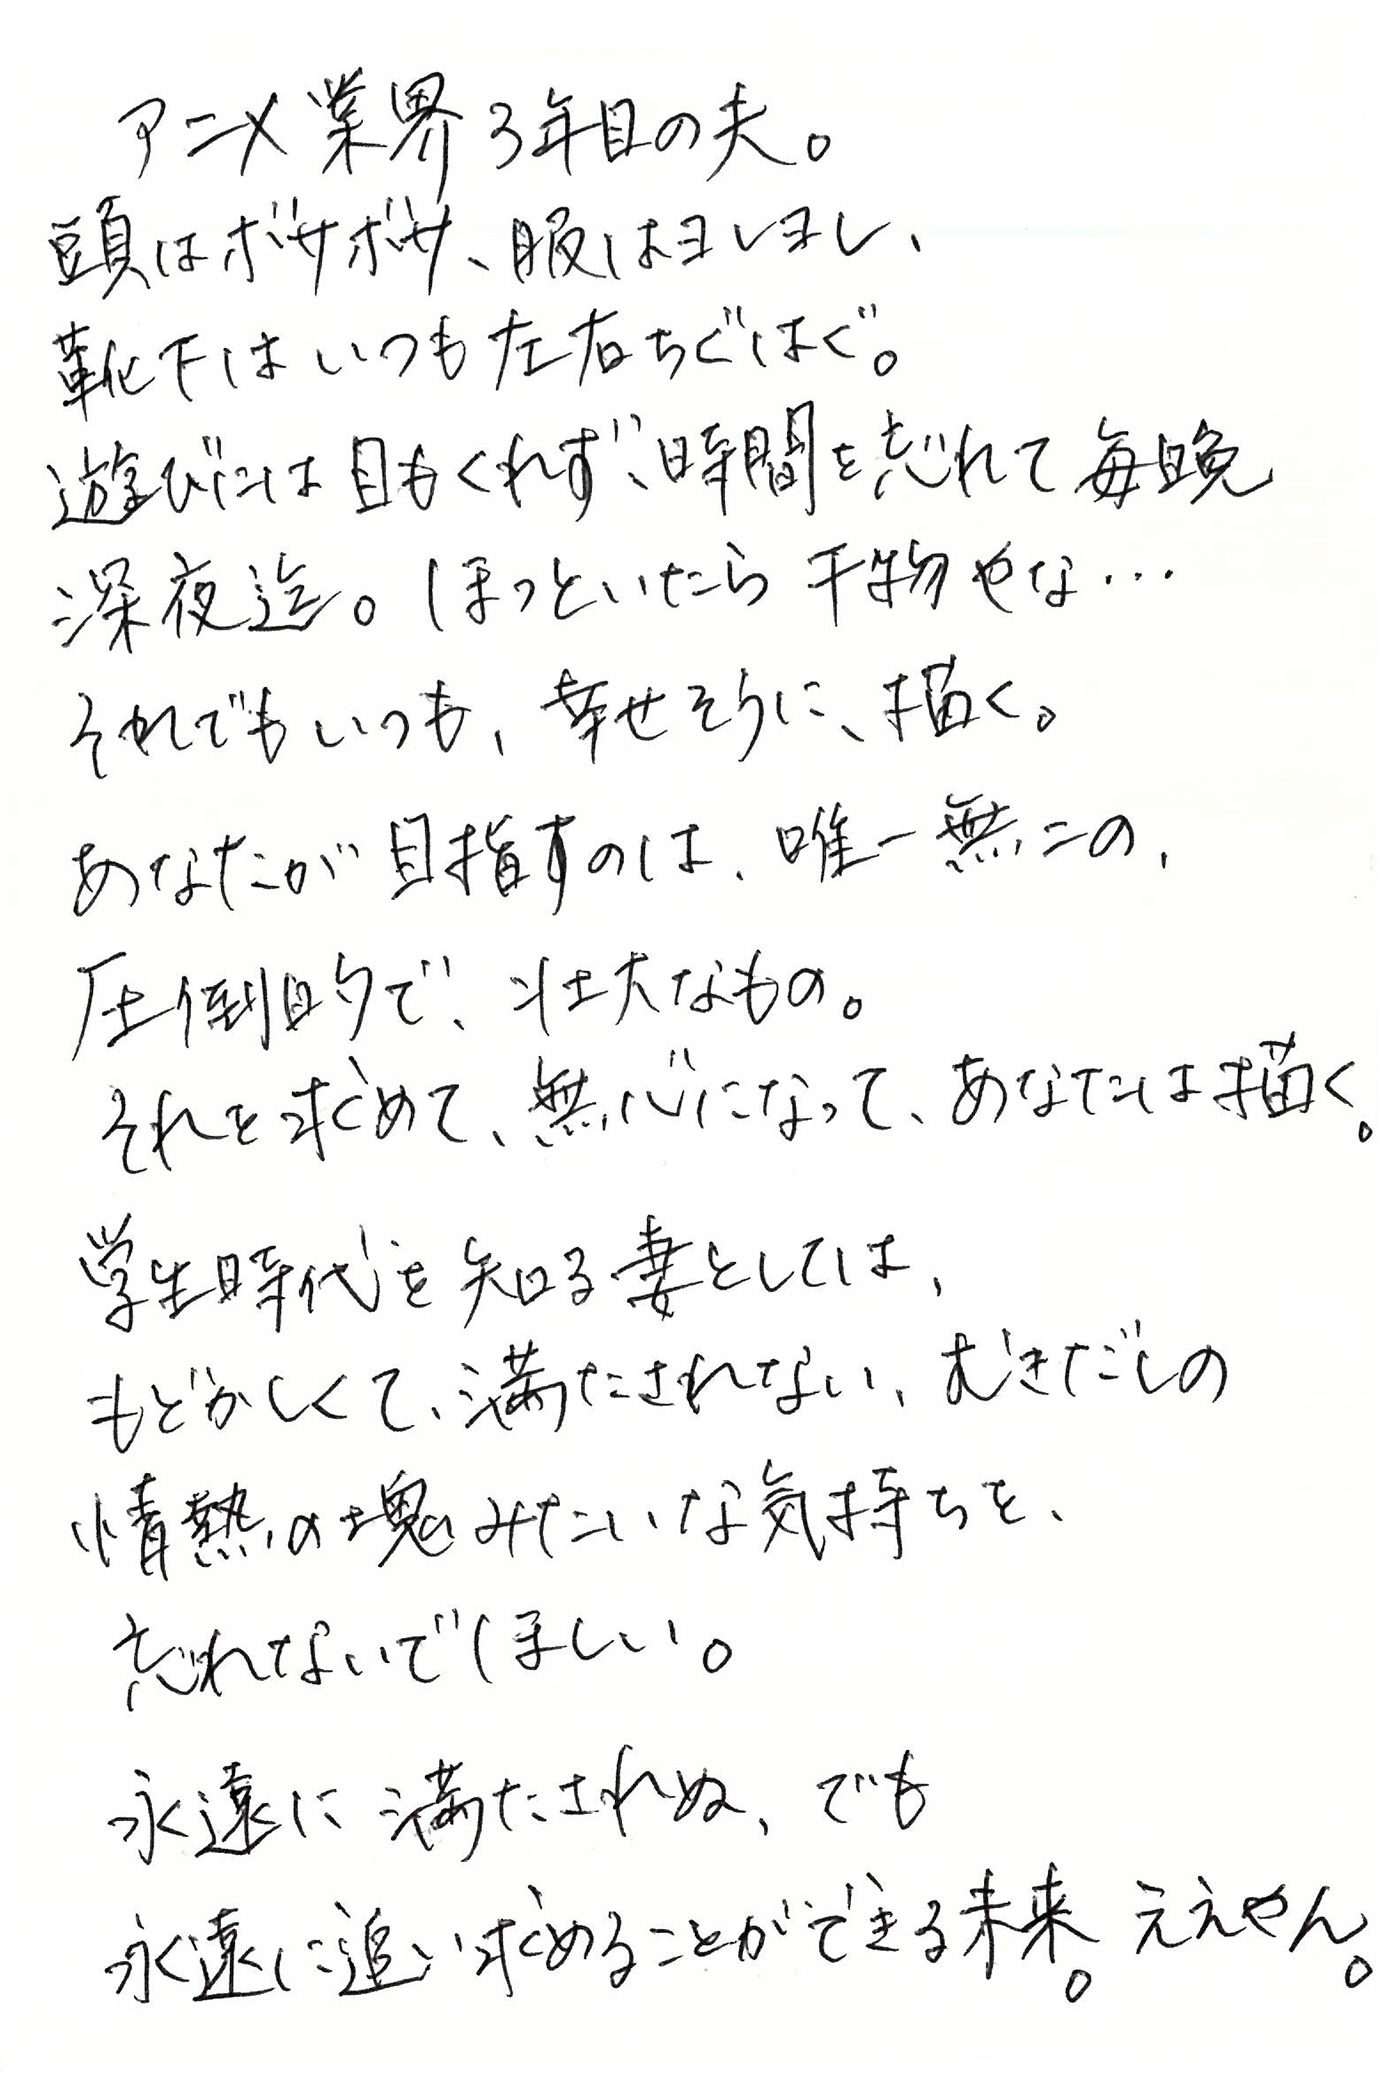 アニメ業界3年目の夫。
頭はボサボサ、服はヨレヨレ、
靴下はいつも左右ちぐはぐ。
遊びには目もくれず、時間を忘れて毎晩
深夜迄。ほっといたら干物やな…
それでもいつも、幸せそうに、描く。
あなたが目指すのは、唯一無二の、
圧倒的で、壮大なもの。
それを求めて、無心になって、あなたは描く。
学生時代を知る妻としては、
もどかしくて、満たされない、むきだしの
情熱の塊みたいな気持ちを、
忘れないでほしい。
永遠に満たされぬ、でも
永遠に追い求めることができる未来。ええやん。